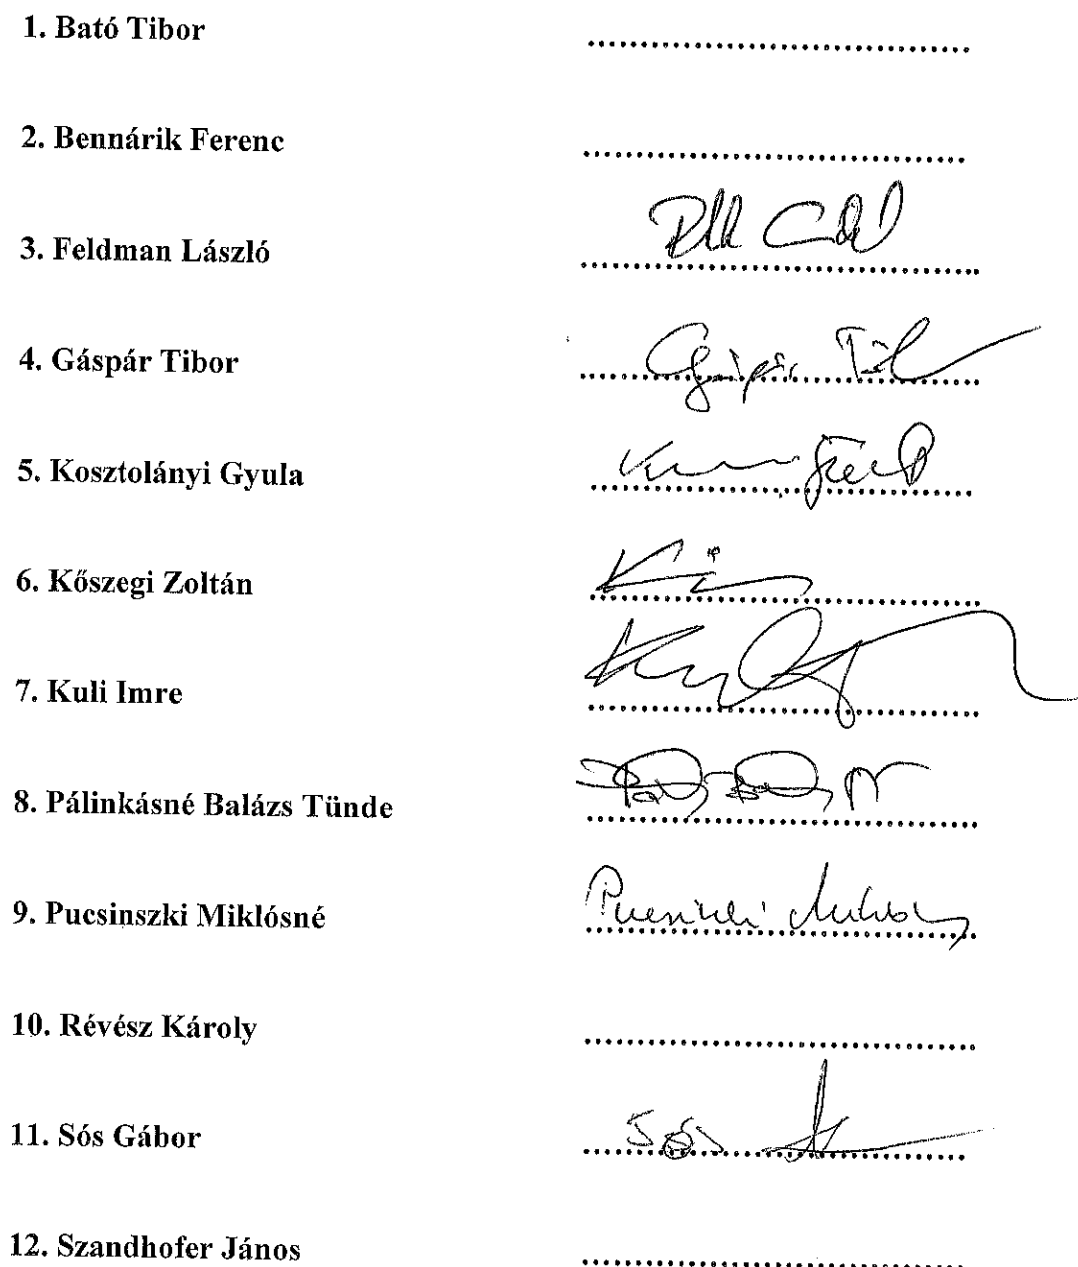 1. Bató Tibor ................................
2. Bennárik Ferenc ................................
3. Feldman László ................................
4. Gáspár Tibor ................................ Gáspár Tib
5. Kosztolányi Gyula ................................
6. Kőszegi Zoltán ................................
7. Kuli Imre ................................
8. Pálinkásné Balázs Tünde ................................
9. Pucsinszki Miklósné ................................
10. Révész Károly ................................
11. Sós Gábor ................................ Sós
12. Szandhofer János ................................